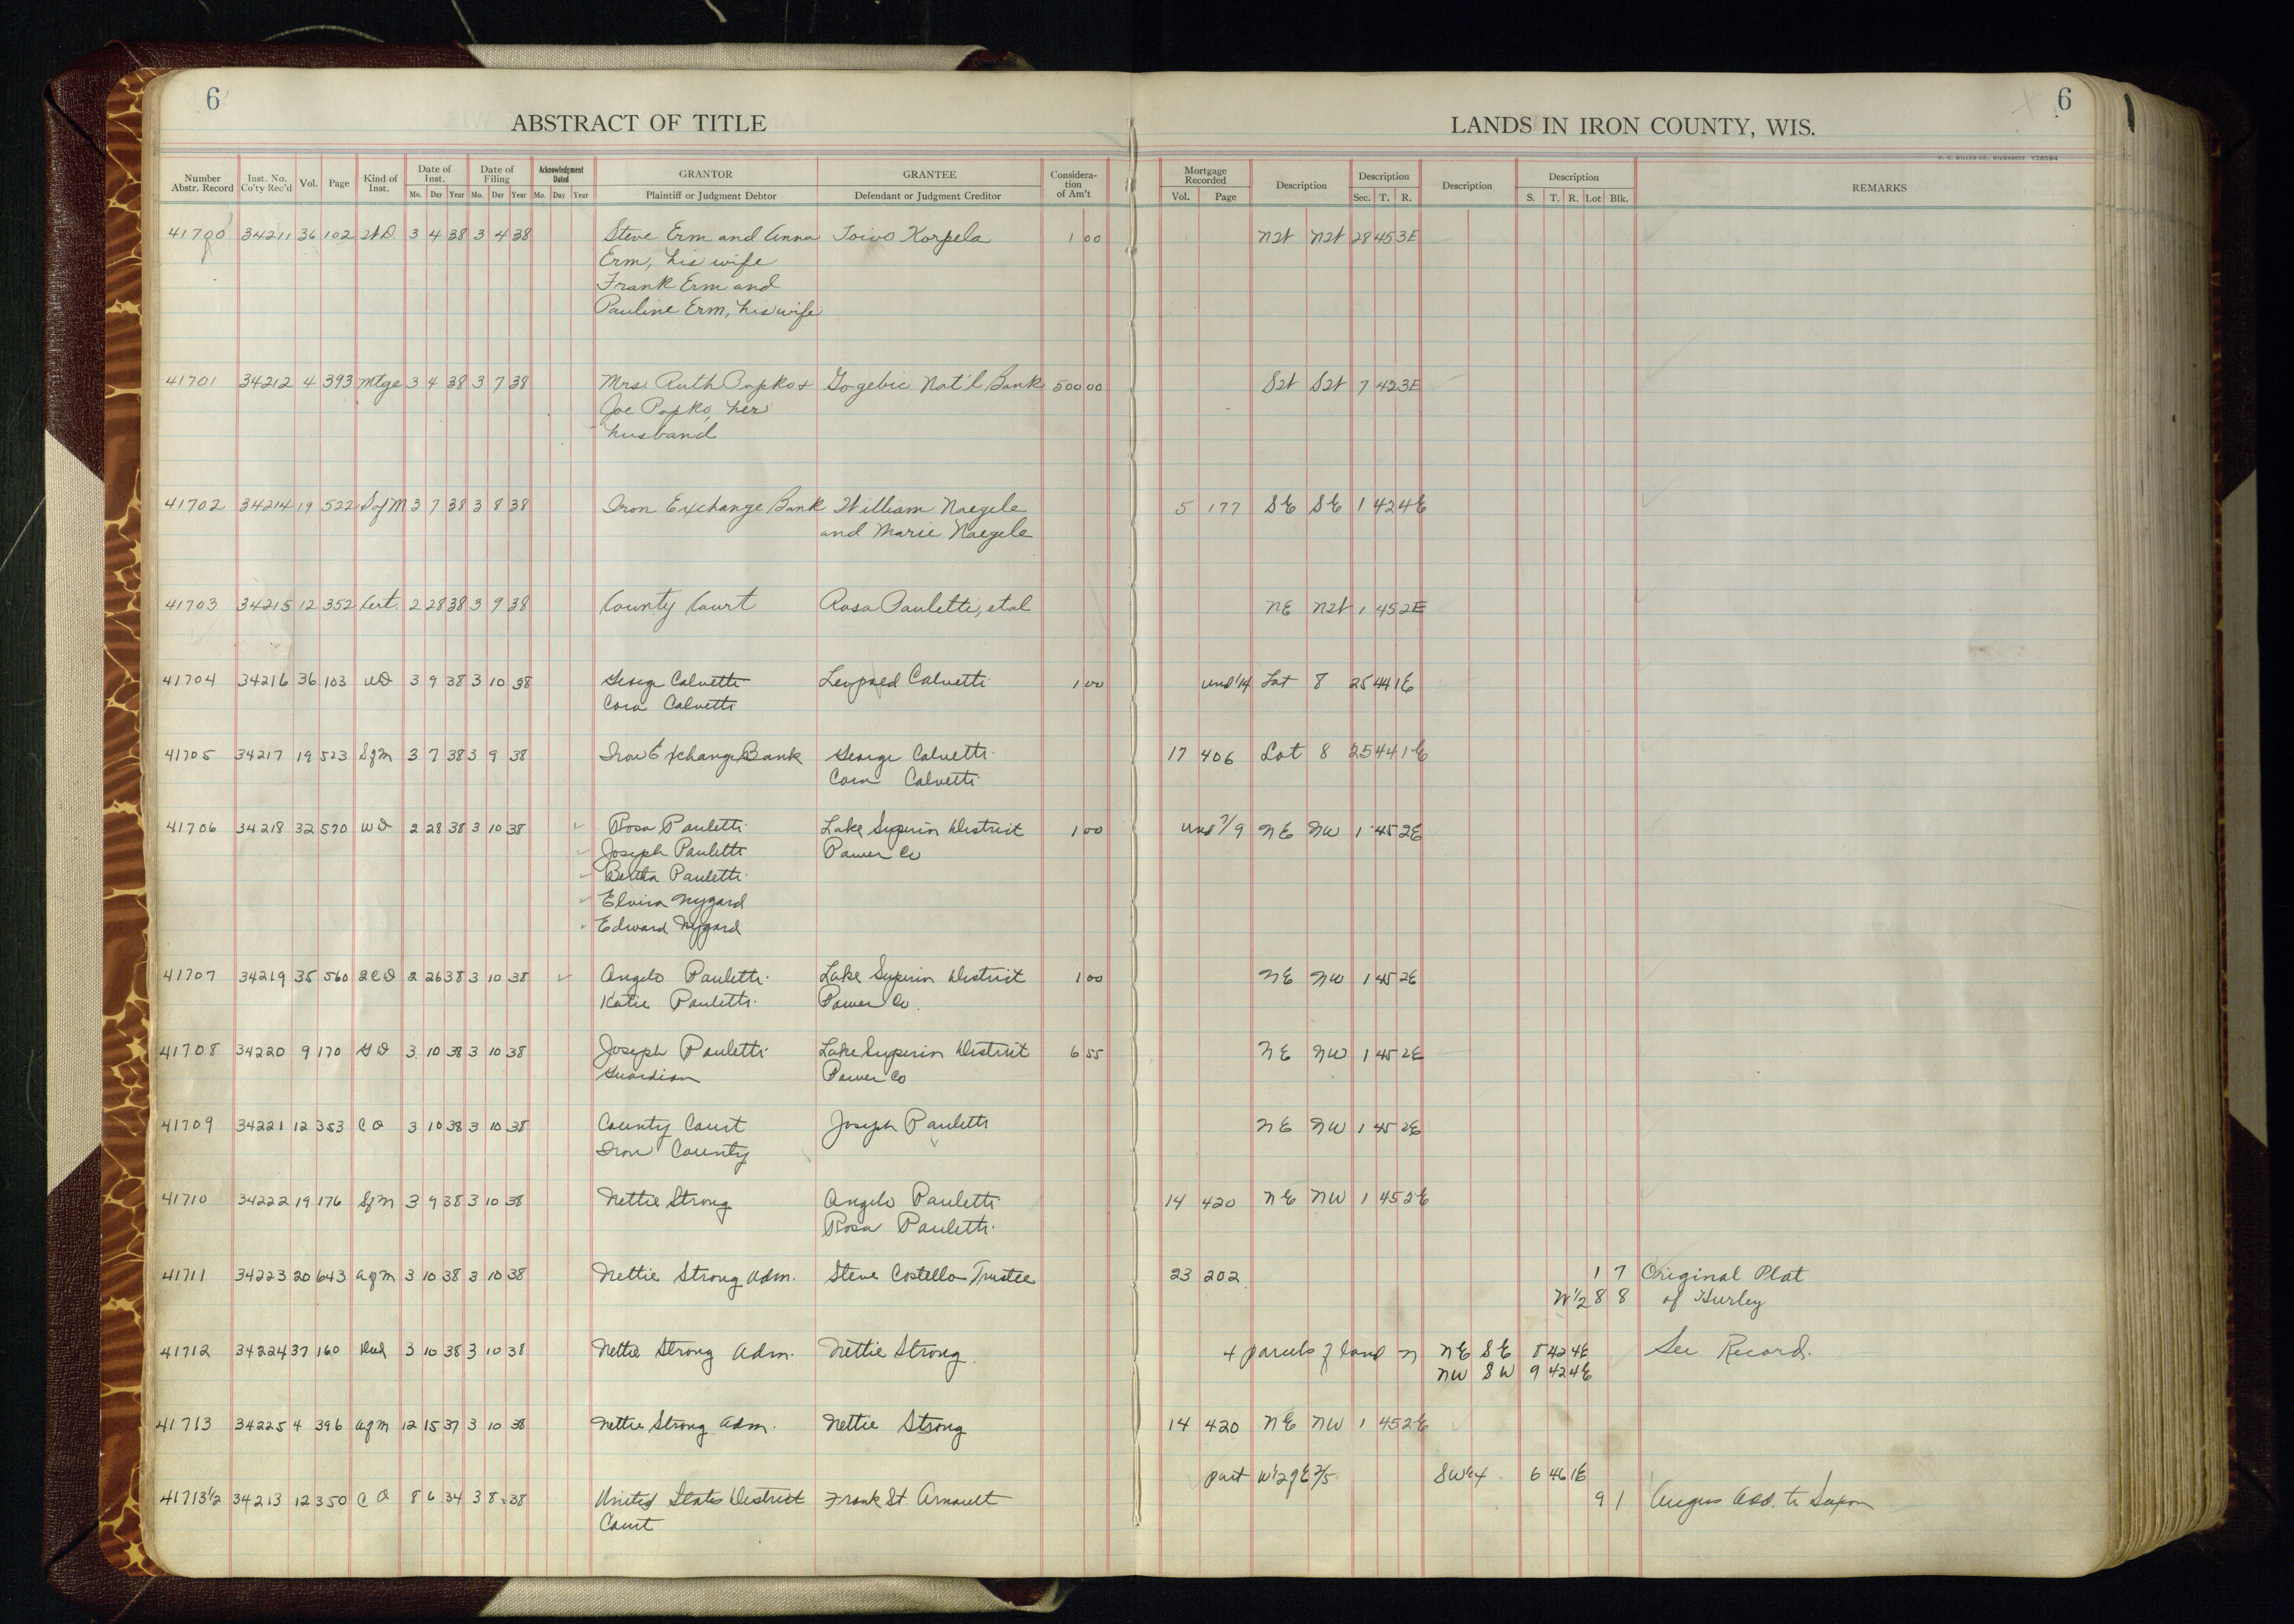 6
ABSTRACT OF TITLE
LANDS IN IRON COUNTY, WIS.
6
H. C. MILLER CO., MILWAUKEE Y28594
Number Abstr. Record Inst. No. Co'ty Rec'd Vol. Page Kind of Inst. Date of Inst. Mo. Day Year Date of Filing Mo. Day Year Acknowledgment Dated Mo. Day Year GRANTOR Plaintiff or Judgment Debtor GRANTEE Defendant or Judgment Creditor Consideration of Am't Mortgage Recorded Vol. Page Description Description Sec. T. R. Description Description S. T. R. Lot Blk. REMARKS
41700 34211 36 102 WD. 3 4 38 3 4 38 Steve Erm and Anna Toivo Korpela 1 00 NW NW 28 45 3E
Erm, his wife
Frank Erm and
Pauline Erm, his wife
41701 34212 4 393 Mtge 3 4 38 3 7 38 Mrs. Ruth Popko + Gogebic Nat'l Bank 500 00 SW SW 7 42 3E
Joe Popko, her
husband
41702 34214 19 522 SofM 3 7 38 3 8 38 Iron Exchange Bank William Naegele 5 177 SE SE 1 42 4E
and Marie Naegele
41703 34215 12 352 Cert. 2 28 38 3 9 38 County Court Rosa Pauletti, etal NE NW 1 45 2E
41704 34216 36 103 WD 3 9 38 3 10 38 George Calvetti Leopold Calvetti 1 00 und 1/4 Lot 8 25 44 1E
Cora Calvetti
41705 34217 19 523 SfM 3 7 38 3 9 38 Iron Exchange Bank George Calvetti 17 406 Lot 8 25 44 1E
Cora Calvetti
41706 34218 32 570 WD 2 28 38 3 10 38 Rosa Pauletti Lake Superior District 1 00 und 7/9 NE NW 1 45 2E
Joseph Pauletti Power Co
Bertha Pauletti
Elvira Nygard
Edward Nygard
41707 34219 35 560 QCD 2 26 38 3 10 38 Angelo Pauletti Lake Superior District 1 00 NE NW 1 45 2E
Katie Pauletti Power Co.
41708 34220 9 170 GD 3 10 38 3 10 38 Joseph Pauletti Lake Superior District 6 55 NE NW 1 45 2E
Guardian Power Co
41709 34221 12 353 CO 3 10 38 3 10 38 County Court Joseph Pauletti NE NW 1 45 2E
Iron County
41710 34222 19 176 SfM 3 9 38 3 10 38 Nettie Strong Angelo Pauletti 14 420 NE NW 1 45 2E
Rosa Pauletti
41711 34223 20 643 AfM 3 10 38 3 10 38 Nettie Strong Adm. Steve Costello Trustee 23 202 1 7 Original Plat
W1/2 8 8 of Hurley
41712 34224 37 160 Deed 3 10 38 3 10 38 Nettie Strong Adm. Nettie Strong 4 parcels of land in NE SE 8 42 4E See Record.
NW SW 9 42 4E
41713 34225 4 396 AfM 12 15 37 3 10 38 Nettie Strong Adm. Nettie Strong 14 420 NE NW 1 45 2E
part W1/2 of E 2/5 SW1/4 6 46 1E
41713 1/2 34213 12 350 CO 8 6 34 3 8 38 United States District Frank St. Arnault 9 1 Angus Add. to Saxon
Court